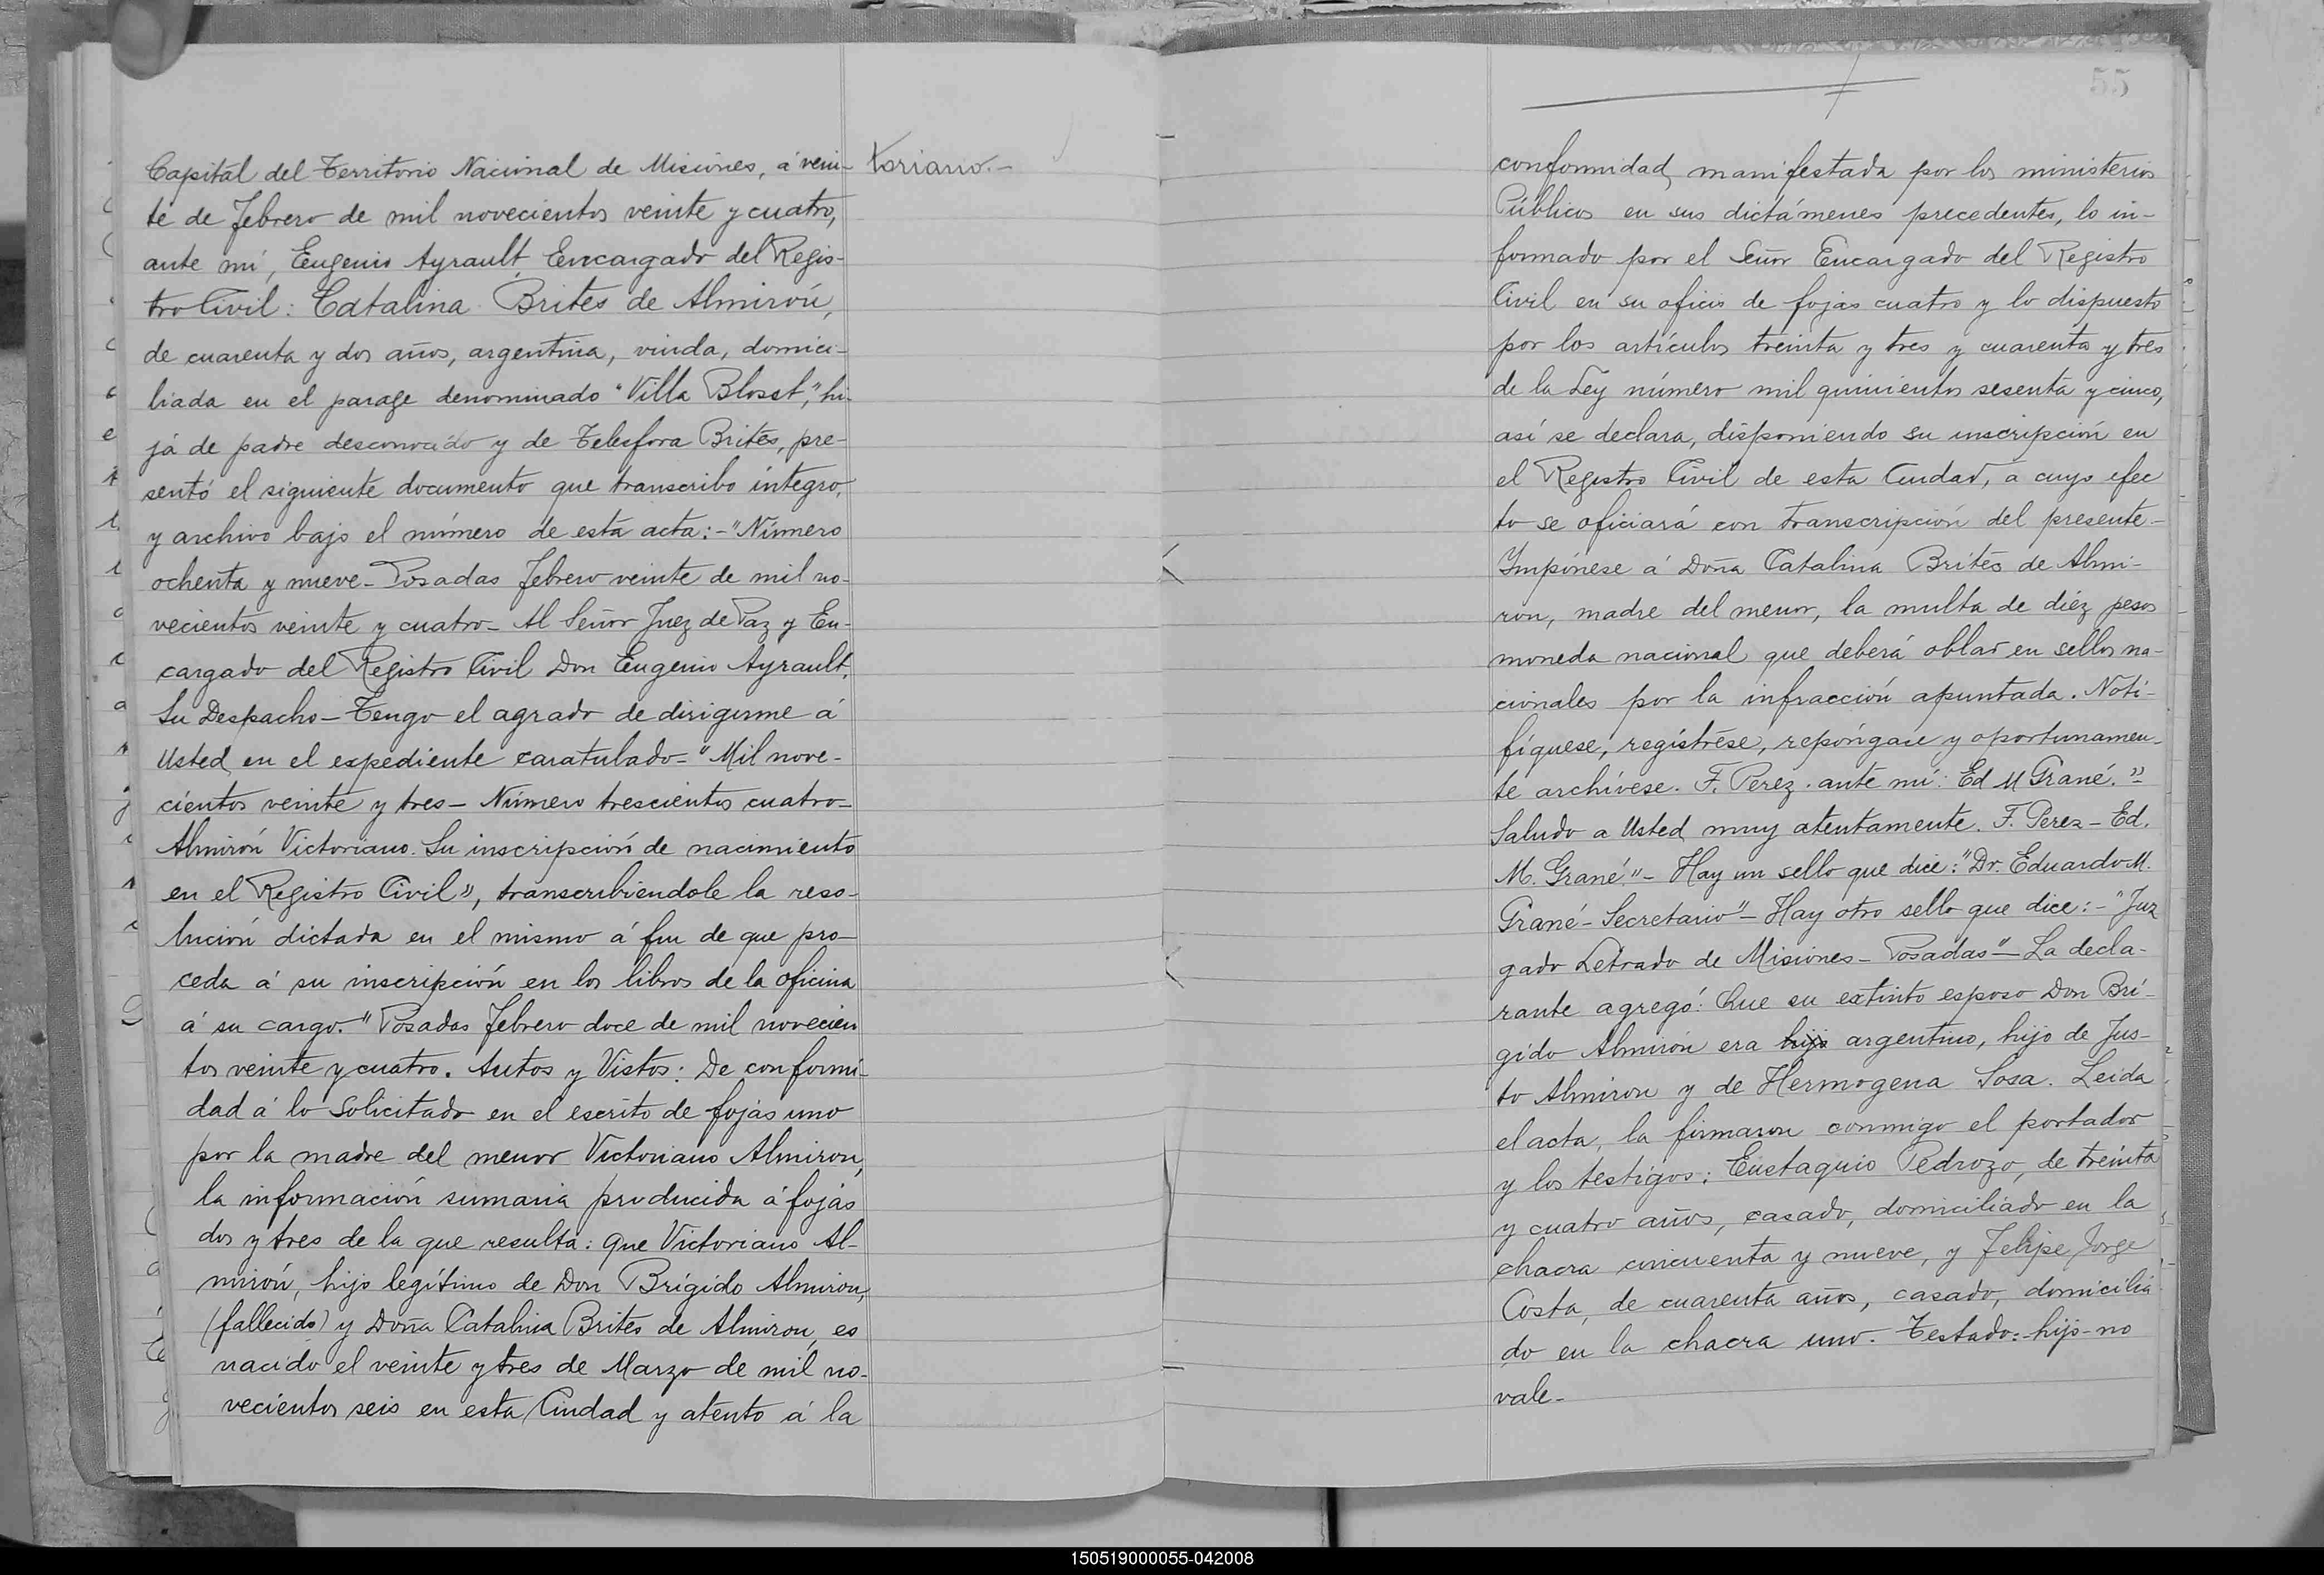 Capital del Territorio Nacional de Misiones, á vein-
te de Febrero de mil novecientos veinte y cuatro,
ante mí, Eugenio Ayrault, Encargado del Regis-
tro Civil: Catalina Brites de Almirón,
de cuarenta y dos años, argentina, viuda, domici-
liada en el parage denominado "Villa Blosset", hi-
ja de padre desconocido y de Telesfora Brites, pre-
sentó el siguiente documento que transcribo íntegro,
y archivo bajo el número de esta acta:-"Número
ochenta y nueve- Posadas Febrero veinte de mil no-
vecientos veinte y cuatro- Al Señor Juez de Paz y En-
cargado del Registro Civil Don Eugenio Ayrault.
Su Despacho- Tengo el agrado de dirigirme á
Usted en el expediente caratulado- "Mil nove-
cientos veinte y tres- Número trescientos cuatro-
Almirón Victoriano. Su inscripción de nacimiento
en el Registro Civil", transcribiendole la reso-
lución dictada en el mismo á fin de que pro-
ceda á su inscripción en los libros de la oficina
á su cargo. "Posadas Febrero doce de mil novecien
tos veinte y cuatro. Autos y Vistos: De conformi-
dad á lo solicitado en el escrito de fojas uno
por la madre del menor Victoriano Almiron,
la información sumaria producida á fojas
dos y tres de la que resulta: que Victoriano Al-
mirón, hijo legítimo de Don Brígido Almiron,
(fallecido) y Doña Catalina Brites de Almiron, es
nacido el veinte y tres de Marzo de mil no-
vecientos seis en esta Ciudad y atento á la
toriano.-
55
conformidad manifestada por los ministerios
Públicos en sus dictámenes precedentes, lo in-
formado por el Señor Encargado del Registro
Civil en su oficio de fojas cuatro y lo dispuesto
por los artículos treinta y tres y cuarenta y tres
de la Ley número mil quinientos sesenta y cinco,
así se declara, disponiendo su inscripción en
el Registro Civil de esta Ciudad, a cuyo efec
to se oficiará con transcripción del presente-
Impónese á Doña Catalina Brites de Almi-
ron, madre del menor, la multa de diéz pesos
moneda nacional que deberá oblar en sellos na-
cionales por la infracción apuntada. Noti-
fíquese, regístrese, repóngase y oportunamen-
te archívese. F. Perez. ante mí: Ed M Grané."-
Saludo a Usted muy atentamente. F. Perez- Ed.
M. Grané."- Hay un sello que dice: "Dr. Eduardo M.
Grané- Secretario"- Hay otro sello que dice:- "Juz
gado Letrado de Misiones- Posadas"- La decla-
rante agregó: Que su extinto esposo Don Brí-
gido Almirón era hijo argentino, hijo de Jus-
to Almiron y de Hermogena Sosa. Leida
el acta, la firmaron conmigo el portador
y los testigos: Eustaquio Pedrozo, de treinta
y cuatro años, casado, domiciliado en la
chacra cincuenta y nueve, y Felipe Jorge
Costa, de cuarenta años, casado, domicilia
do en la chacra uno. Testado: hijo- no
vale-
150519000055-042008